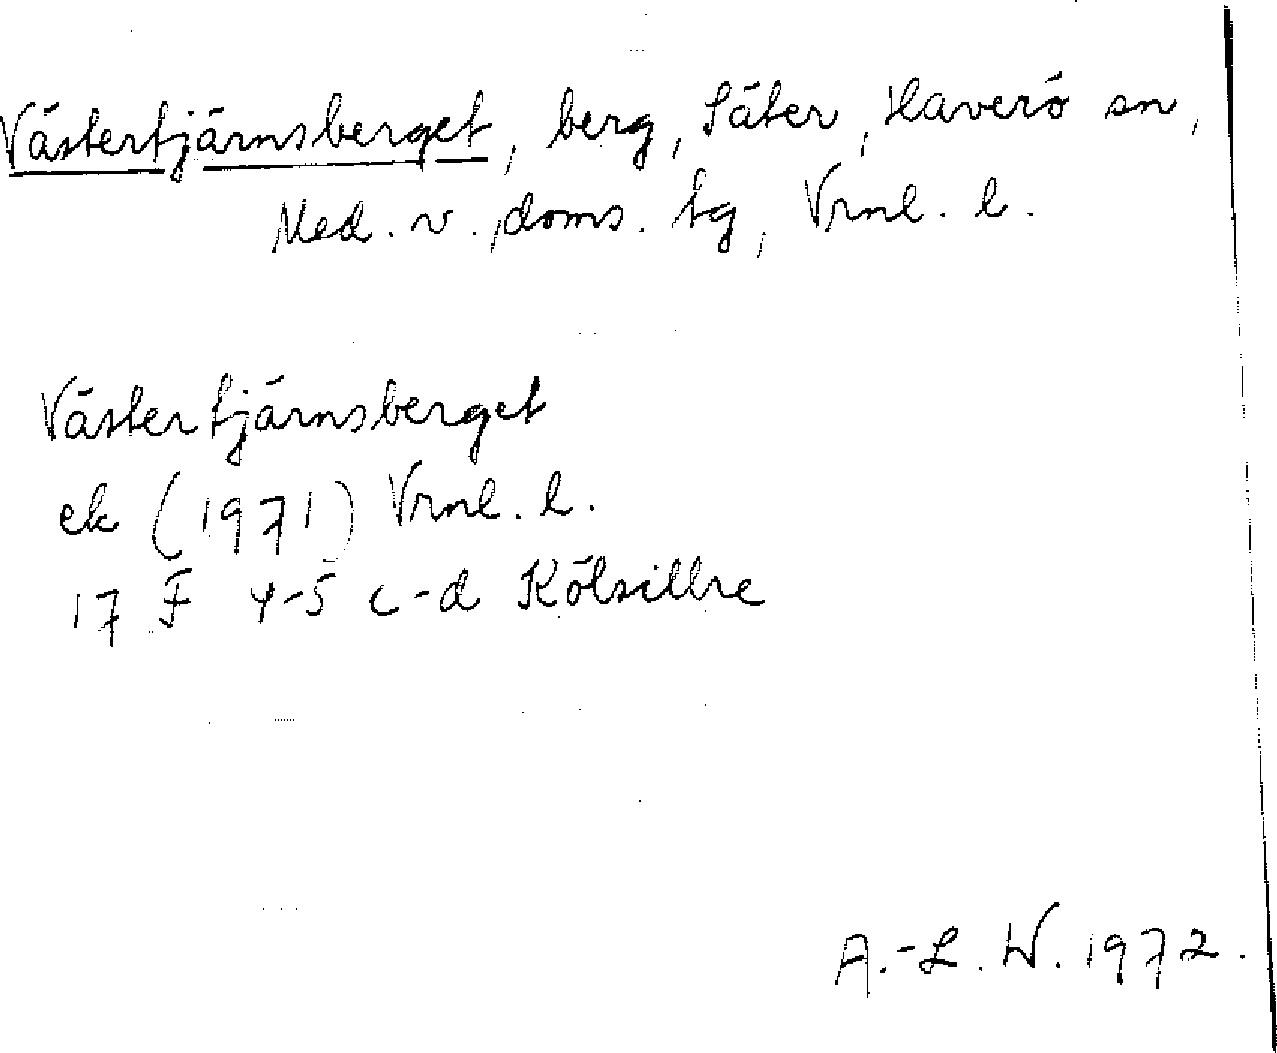 Västertjärnsberget, berg, Säter, Haverö sn,
Med. v. doms. tg, Vrnl. l.
Västertjärnsberget
ek (1971) Vrnl. l.
17 F 4-5 c-d Kölsillre
A.-L. W. 1972.